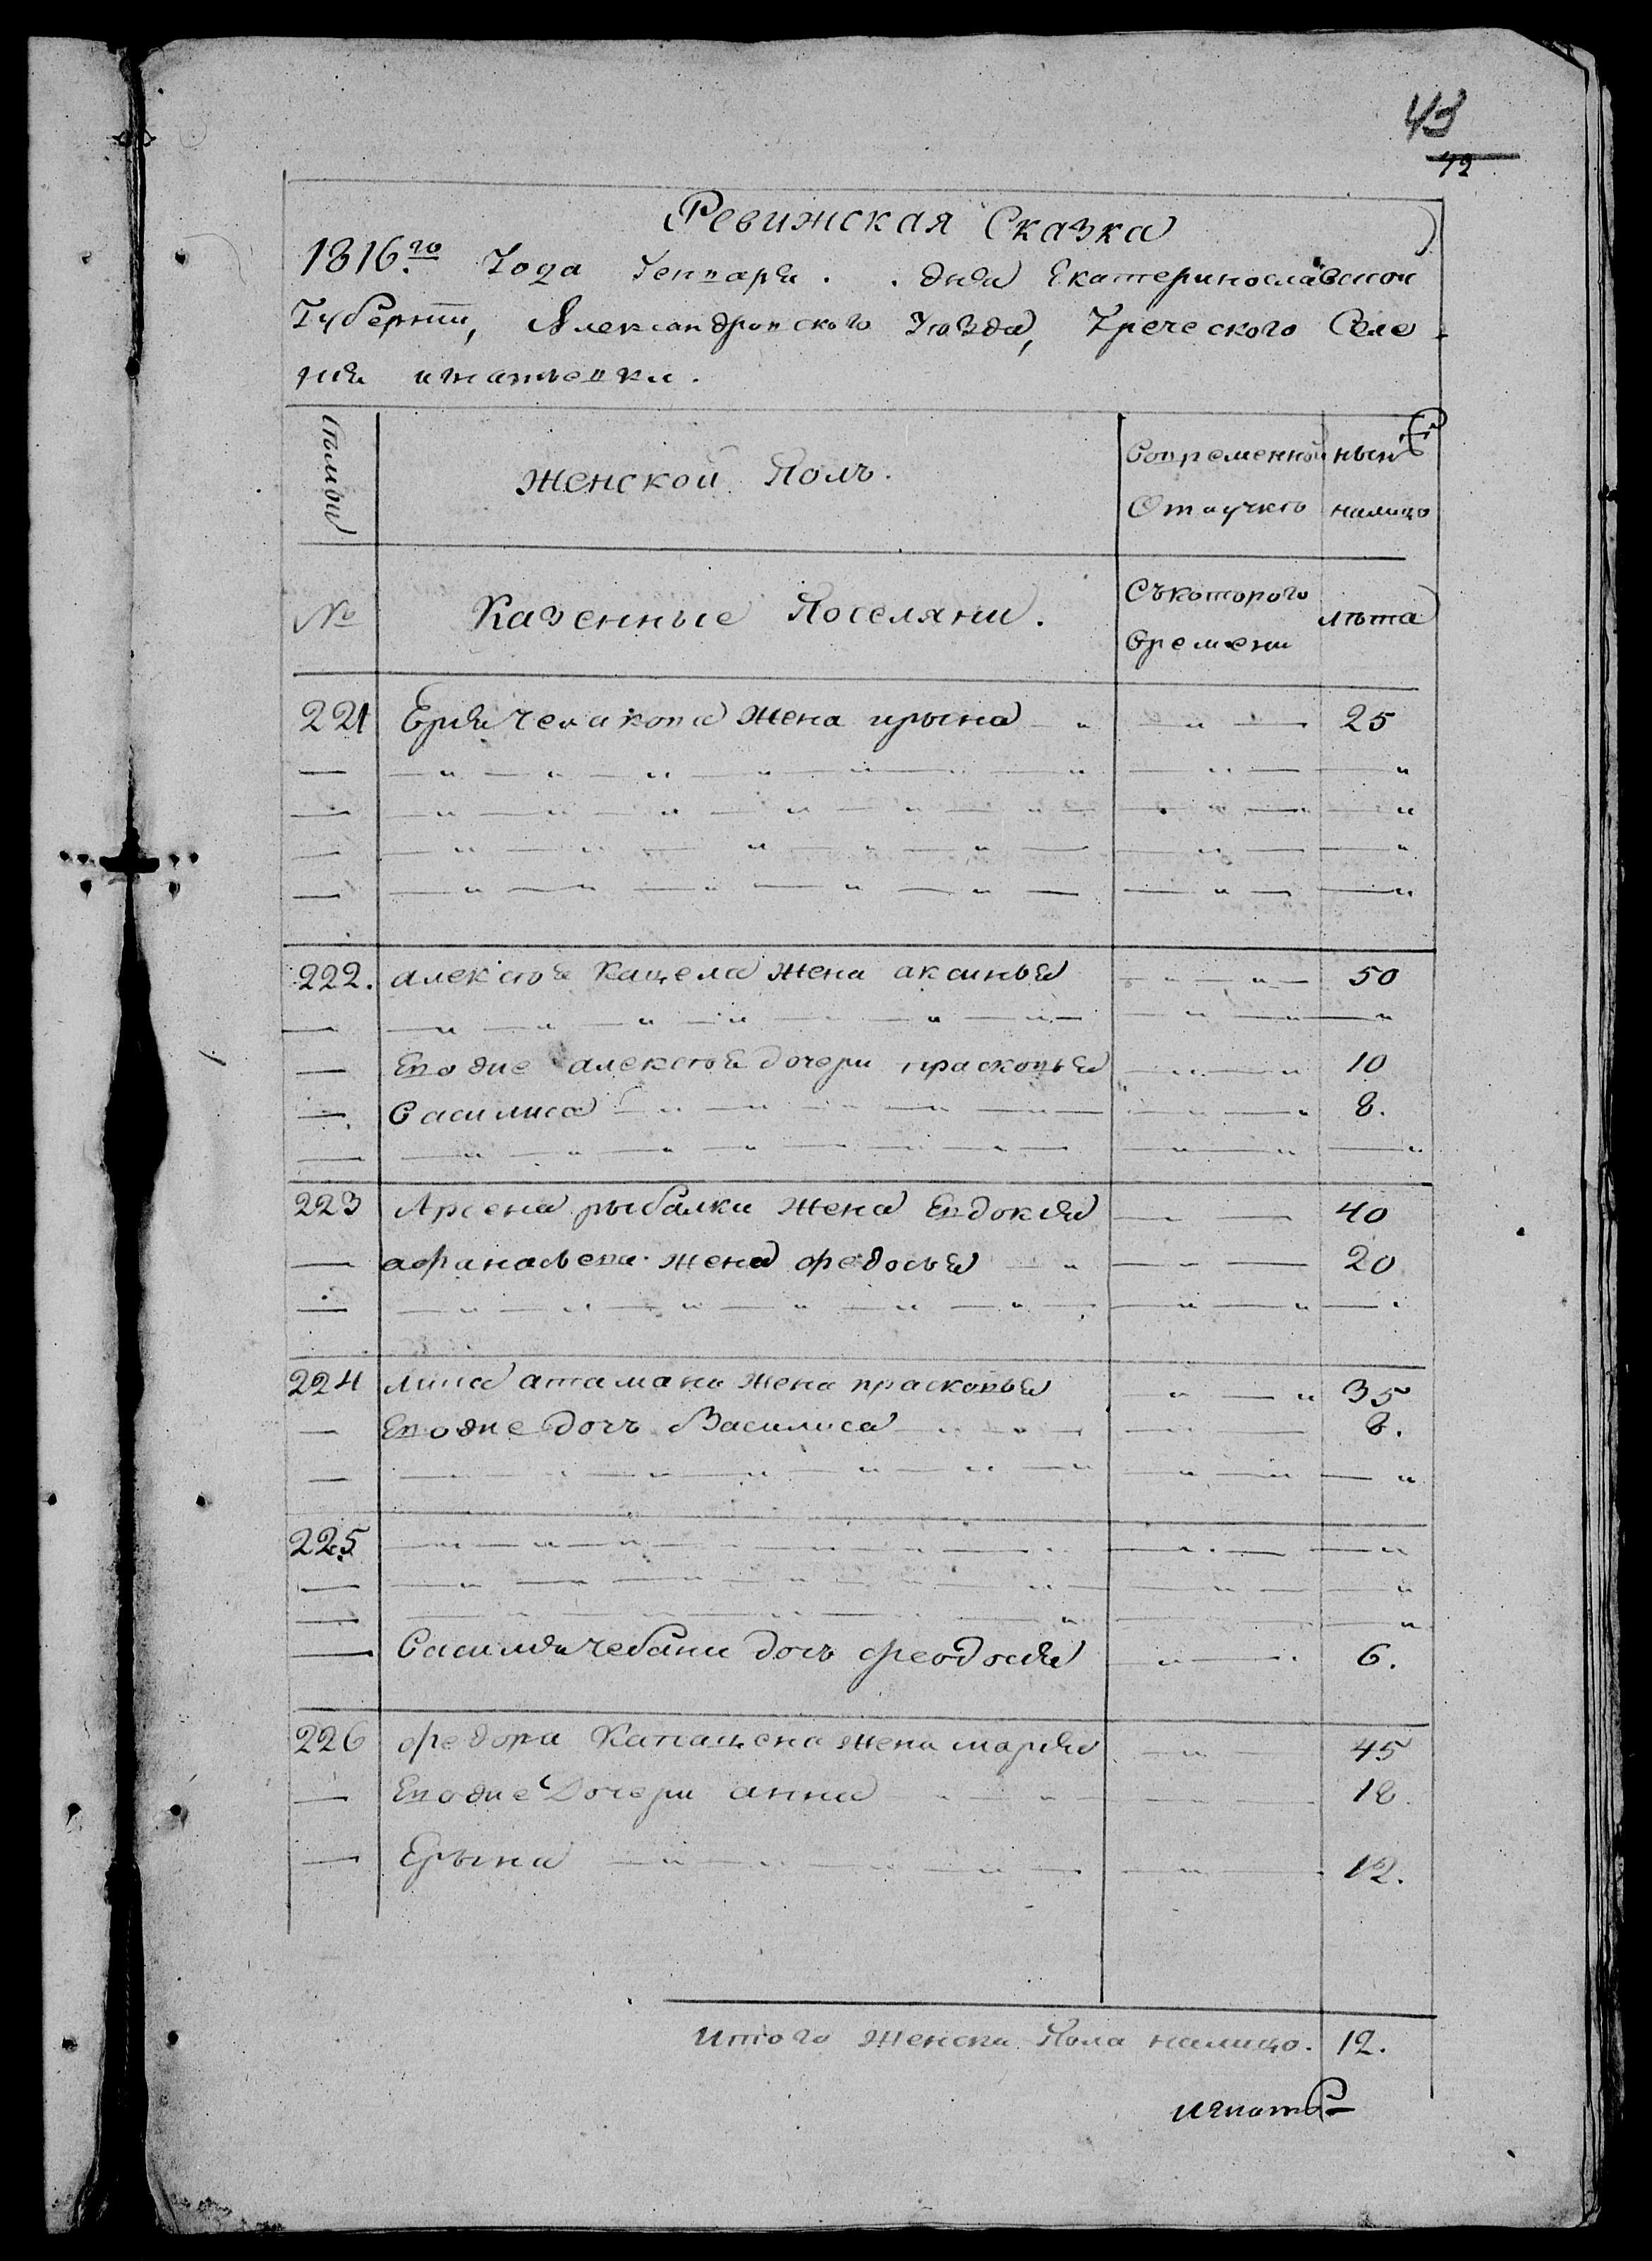 43
42
Ревижская Сказка
1816го Года Генваря . . дня Екатеринославской
Губернии, Александровского Уезда, Греческого Селе
ния игнатьевки.
Семьи
Женской Полъ.
Вовременной
Отлучке
ныне
налицо
№
Казенные Поселяни.
Съкоторого
времени
лѣта
221 Ерия Челакова Жена ирына 25
222. алексѣя Кацела Жена аксинья 50
Еводне алексѣя дочери прасковья 10
Василиса 8.
223 Арсена рыбалки Жена Евдокия 40
афанасьева жена федосья 20
224 Атамана Жена прасковья 35
Еводне дочь Василиса 8.
225
Василия чебана дочь феодосия 6.
226 федора Капацена жена мария 45
Еводне Дочери анна 18.
Ерына 12.
Итого Женска Пола налицо. 12.